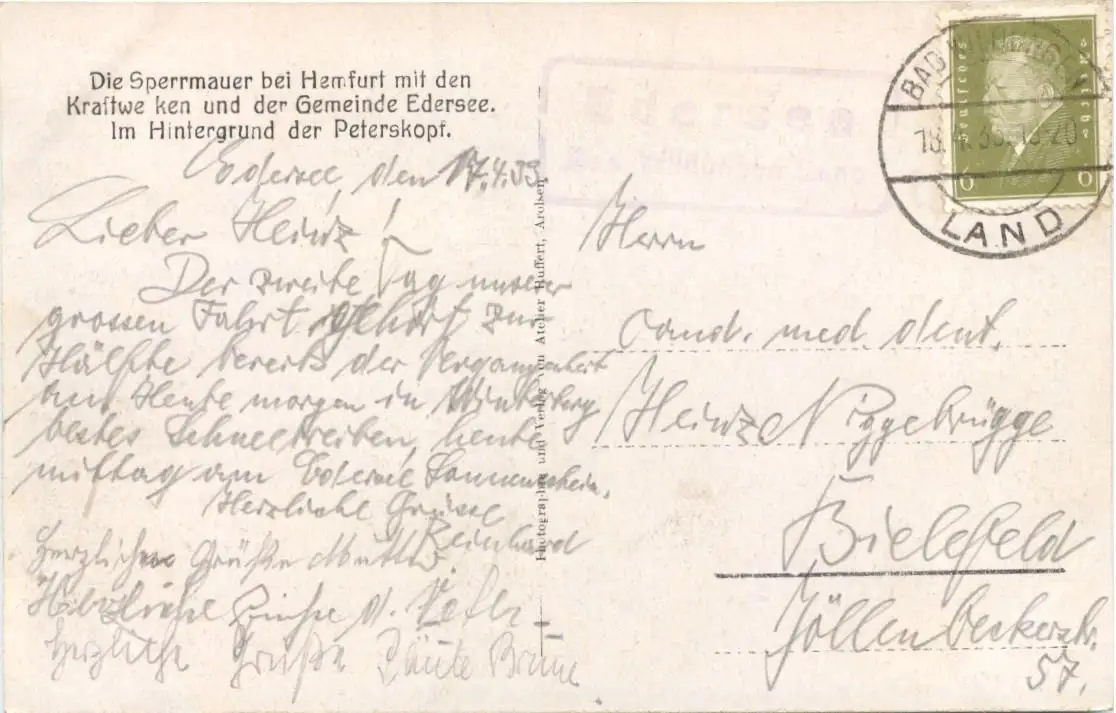 Die Sperrmauer bei Hemfurt mit den
Kraftwe ken und der Gemeinde Edersee.
Im Hintergrund der Peterskopf.
Edersee, den 17.4.33.
Lieber Heinz!
Der zweite Tag unserer
grossen Fahrt gehört zur
Hälfte bereits der Vergangenheit
an. Heute morgen in Winterberg
bestes Schneetreiben, heute
mittag am Edersee Sonnenschein.
Herzliche Grüsse
Reinhard
Herzlichen Grüße Mutter
Herzliche Grüße d.
Herzliche Grüße Tante
Photographie und Verlag von Atelier Ruffert, Arolsen
BAD WILDUNGEN
18.4.33.18-20
LAND
Deutsches Reich
6 6
Herrn
cand. med. dent.
Heinz Niggebrügge
Bielefeld
Jöllenbeckerstr.
57.